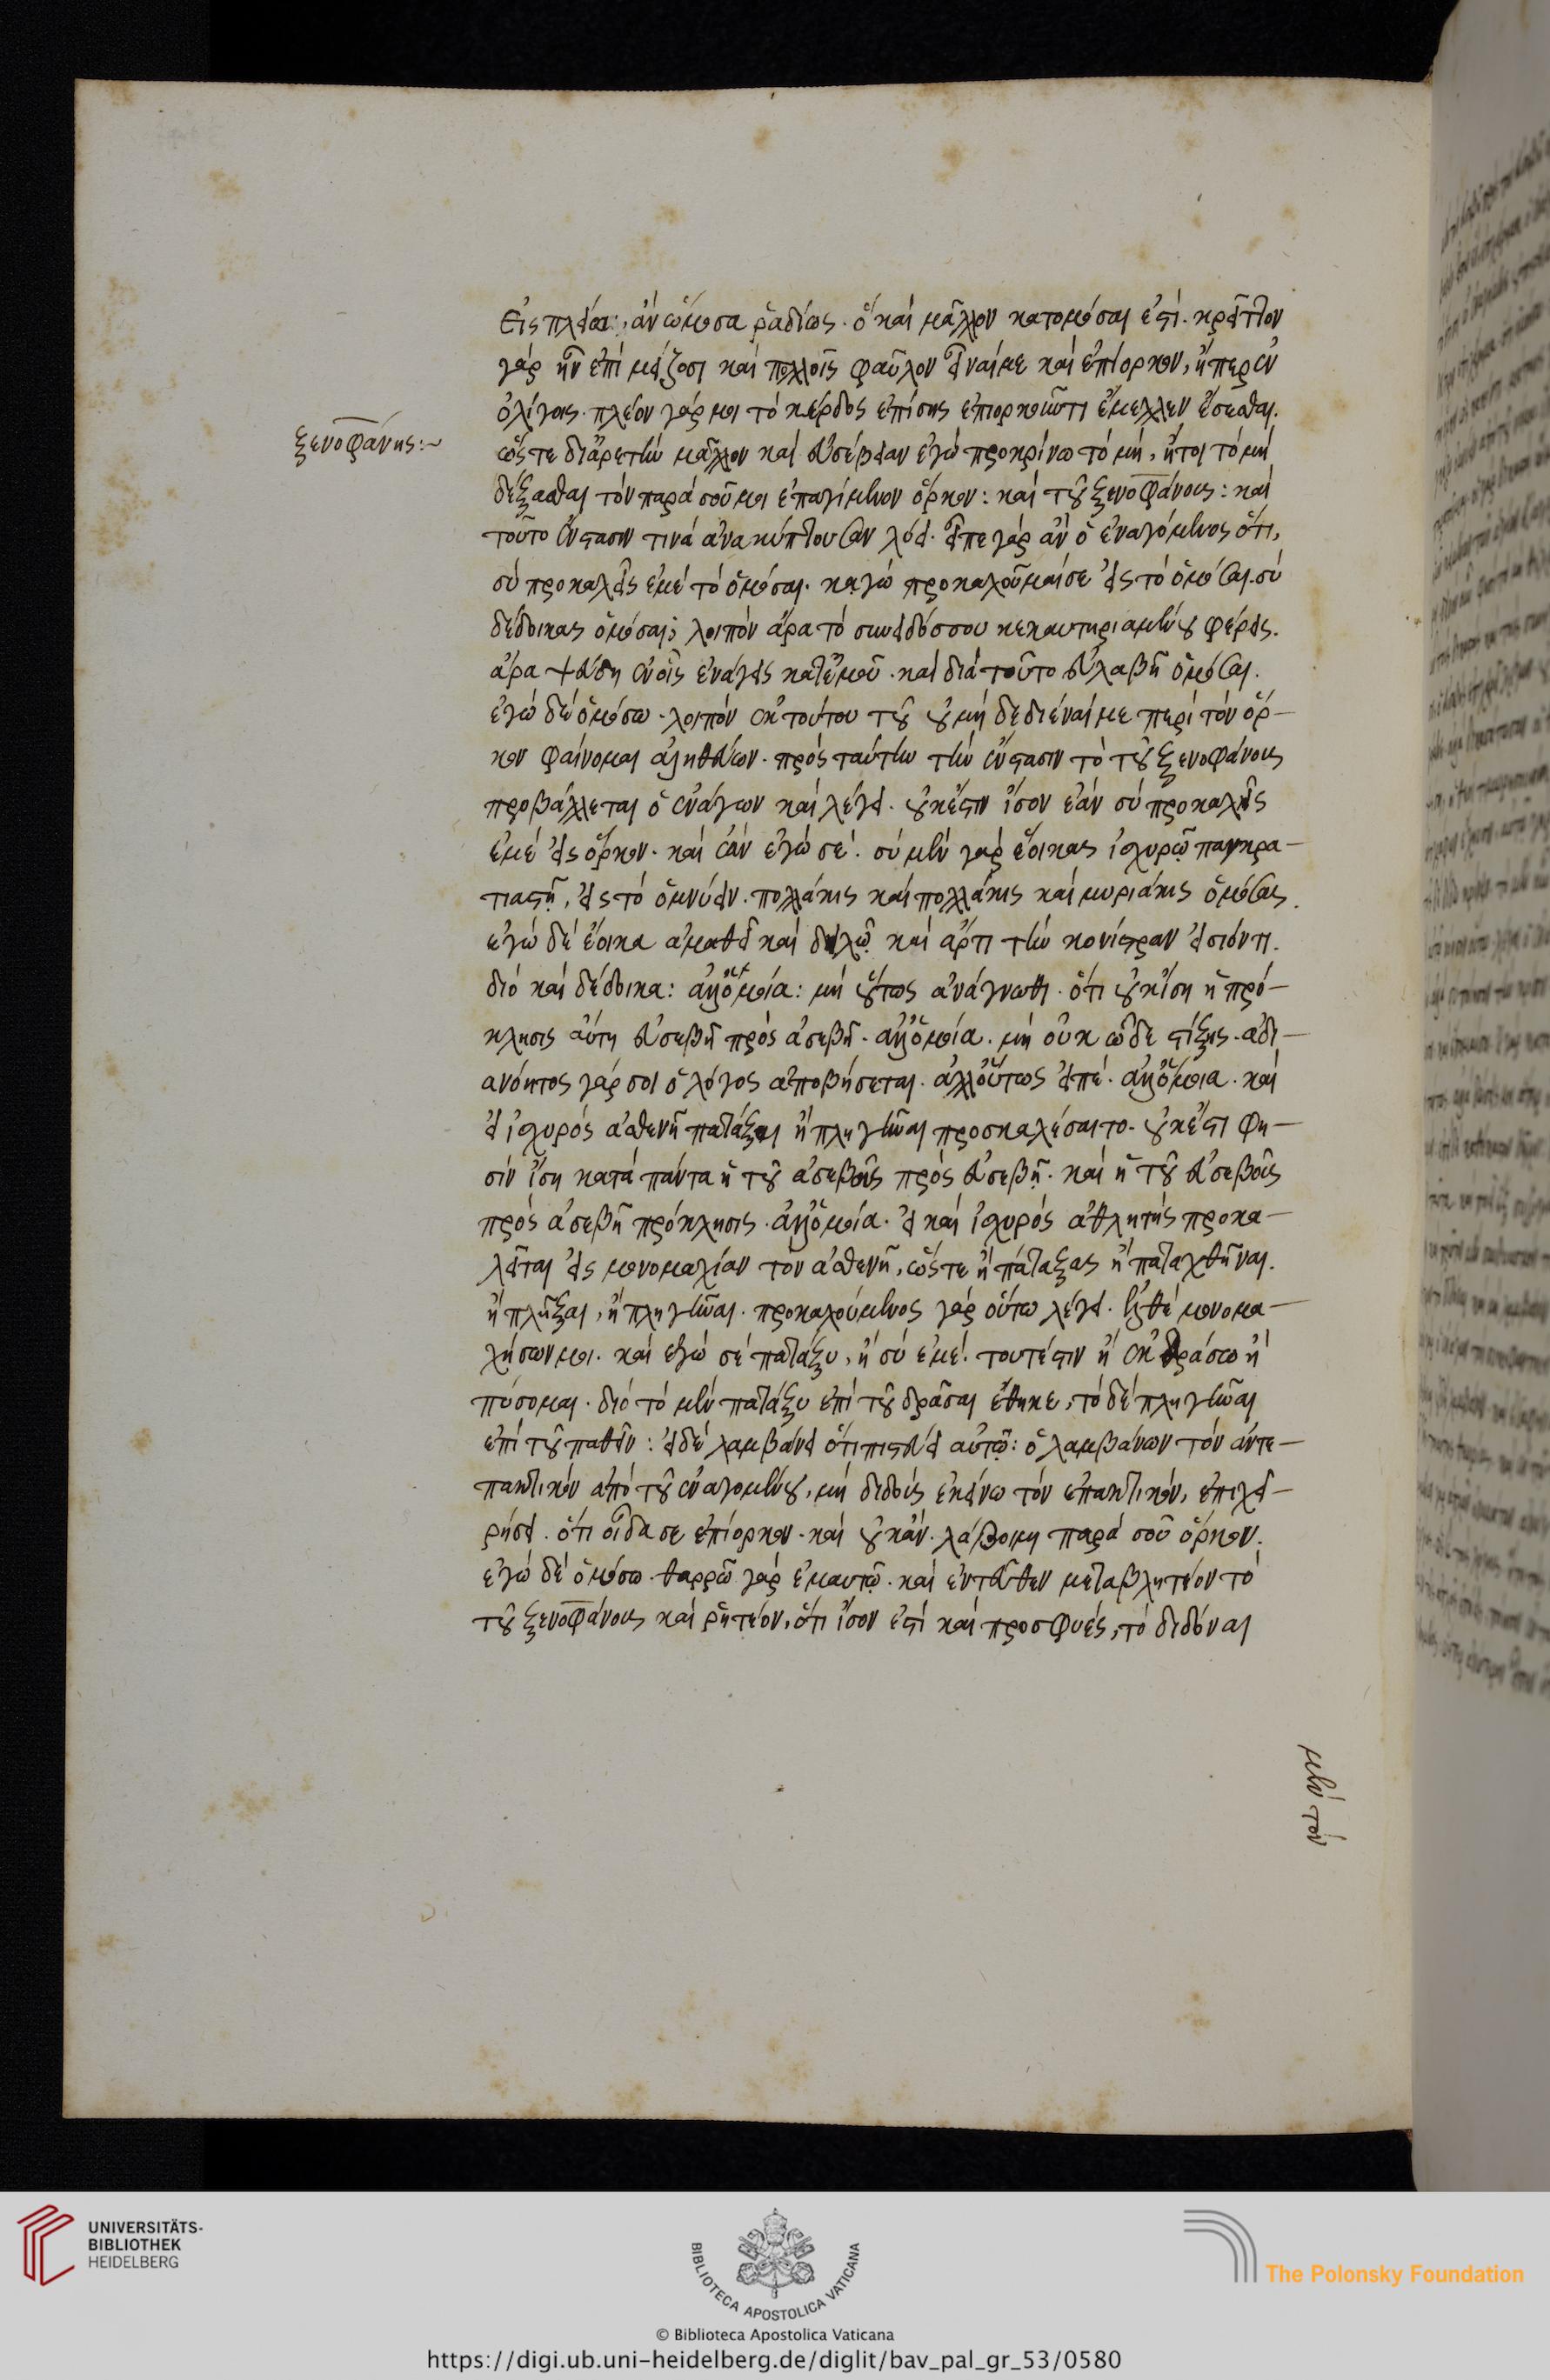 Εἰς πλείω, ἂν ὤμοσα ῥαδίως. ὃ καὶ μᾶλλον κατομόσαι ἐστί. κρεῖττον
γὰρ ἦν ἐπὶ μείζοσι καὶ πολλοῖς φαῦλον εἶναί με καὶ ἐπίορκον, ἤπερ ἐν
ὀλίγοις. πλέον γάρ μοι τὸ κέρδος ἐπίσης ἐπιορκοῦντι ἔμελλεν ἔσεσθαι.
ξενοφάνης:~
ὥστε διἀρετὴν μᾶλλον καὶ εὐσέβειαν ἐγὼ προκρίνω τὸ μὴ, ἤτοι τὸ μὴ
δέξασθαι τὸν παρὰ σοῦ μοι ἐπαγόμενον ὅρκον: καὶ τοῦ ξενοφάνους: καὶ
τοῦτο ἔνστασιν τινὰ ἀνακύπτουσαν λύει. εἶπε γὰρ ἂν ὁ ἐναγόμενος ὅτι,
σὺ προκαλεῖς ἐμὲ τὸ ὀμόσαι. κᾀγὼ προκαλοῦμαί σε εἰς τὸ ὀμόσαι. σὺ
δέδοικας ὀμόσαι; λοιπὸν ἄρα τὸ συνειδός σου κεκαυτηριασμένον φέρεις.
ἄρα ψεύδῃ ἐν οἷς ἐνάγεις κατ' ἐμοῦ. καὶ διὰ τοῦτο εὐλαβῇ ὀμόσαι.
ἐγὼ δὲ ὀμόσω. λοιπὸν ἐκ τούτου τοῦ οὐ μὴ δεδιέναι με περὶ τὸν ὅρ-
κον φαίνομαι ἀληθεύων. πρὸς ταύτην τὴν ἔνστασιν τὸ τοῦ ξενοφάνους
προβάλλεται ὁ ἐνάγων καὶ λέγει. οὐκ ἔστιν ἴσον ἐὰν σὺ προκαλῇς
ἐμὲ εἰς ὅρκον. καὶ ἐὰν ἐγὼ σέ. σὺ μὲν γὰρ ἔοικας ἰσχυρῷ παγκρα-
τιαστῇ, εἰς τὸ ὀμνύειν. πολλάκις καὶ πολλάκις καὶ μυριάκις ὀμόσας.
ἐγὼ δὲ ἔοικα ἀμαθεῖ καὶ δειλῷ καὶ ἄρτι τὴν κονίστραν εἰσιόντι.
διὸ καὶ δέδοικα: ἀλλ' ὁμοία: μὴ οὕτως ἀνάγνωθι. ὅτι οὐκ ἴση ἡ πρό-
κλησις αὕτη εὐσεβῆ πρὸς ἀσεβῆ. ἀλλ' ὁμοία. μὴ οὖν ὧδε στίξῃς. ἀδι-
ανόητος γάρ σοι ὁ λόγος ἀποβήσεται. ἀλλ' οὕτως εἰπέ. ἀλλ' ὁμοια. καὶ
εἰ ἰσχυρὸς ἀσθενῆ πατάξαι ἢ πληγῆναι προσκαλέσαιτο. οὐκ ἔστι φη-
σὶν ἴση κατὰ πάντα ἡ τοῦ ἀσεβοῦς πρὸς εὐσεβῆ. καὶ ἡ τοῦ εὐσεβοῦς
πρὸς ἀσεβῆ πρόκλησις. ἀλλ' ὁμοία. εἰ καὶ ἰσχυρὸς ἀθλητὴς προκα-
λεῖται εἰς μονομαχίαν τὸν ἀσθενῆ, ὥστε ἢ πάταξας ἢ παταχθῆναι.
ἢ πλῆξαι, ἢ πληγῆναι. προκαλούμενος γὰρ οὕτω λέγει. ἐλθὲ μονομα-
χήσων μοι. καὶ ἐγὼ σὲ πατάξω, ἢ σὺ ἐμέ. τουτέστιν ἢ ἐκ δράσω ἢ
πείσομαι. διὸ τὸ μὲν πατάξω ἐπὶ τοῦ δρᾶσαι ἔθηκε, τὸ δὲ πληγῆναι
ἐπὶ τοῦ παθεῖν: εἰ δὲ λαμβάνει ὅτι πιστεύει αὐτῷ: ὁ λαμβάνων τὸν ἀντε-
πακτικὸν ἀπὸ τοῦ ἐναγομένου, μὴ διδοὺς ἐκείνω τὸν ἐπακτικὸν, ἐπιχει-
ρήσει. ὅτι οἶδα σε ἐπίορκον. καὶ οὐκ ἂν λάβοιμι παρὰ σοῦ ὅρκον.
ἐγὼ δὲ ὀμόσω. θαρρῶ γὰρ ἐμαυτῷ. καὶ ἐντεῦθεν μεταβλητέον τὸ
τοῦ ξενοφάνους καὶ ῥητέον, ὅτι ἴσον ἐστὶ καὶ προσφυές, τὸ διδόναι
μὲν τὸν
UNIVERSITÄTS-
BIBLIOTHEK
HEIDELBERG
BIBLIOTECA APOSTOLICA VATICANA
The Polonsky Foundation
© Biblioteca Apostolica Vaticana
https://digi.ub.uni-heidelberg.de/diglit/bav_pal_gr_53/0580